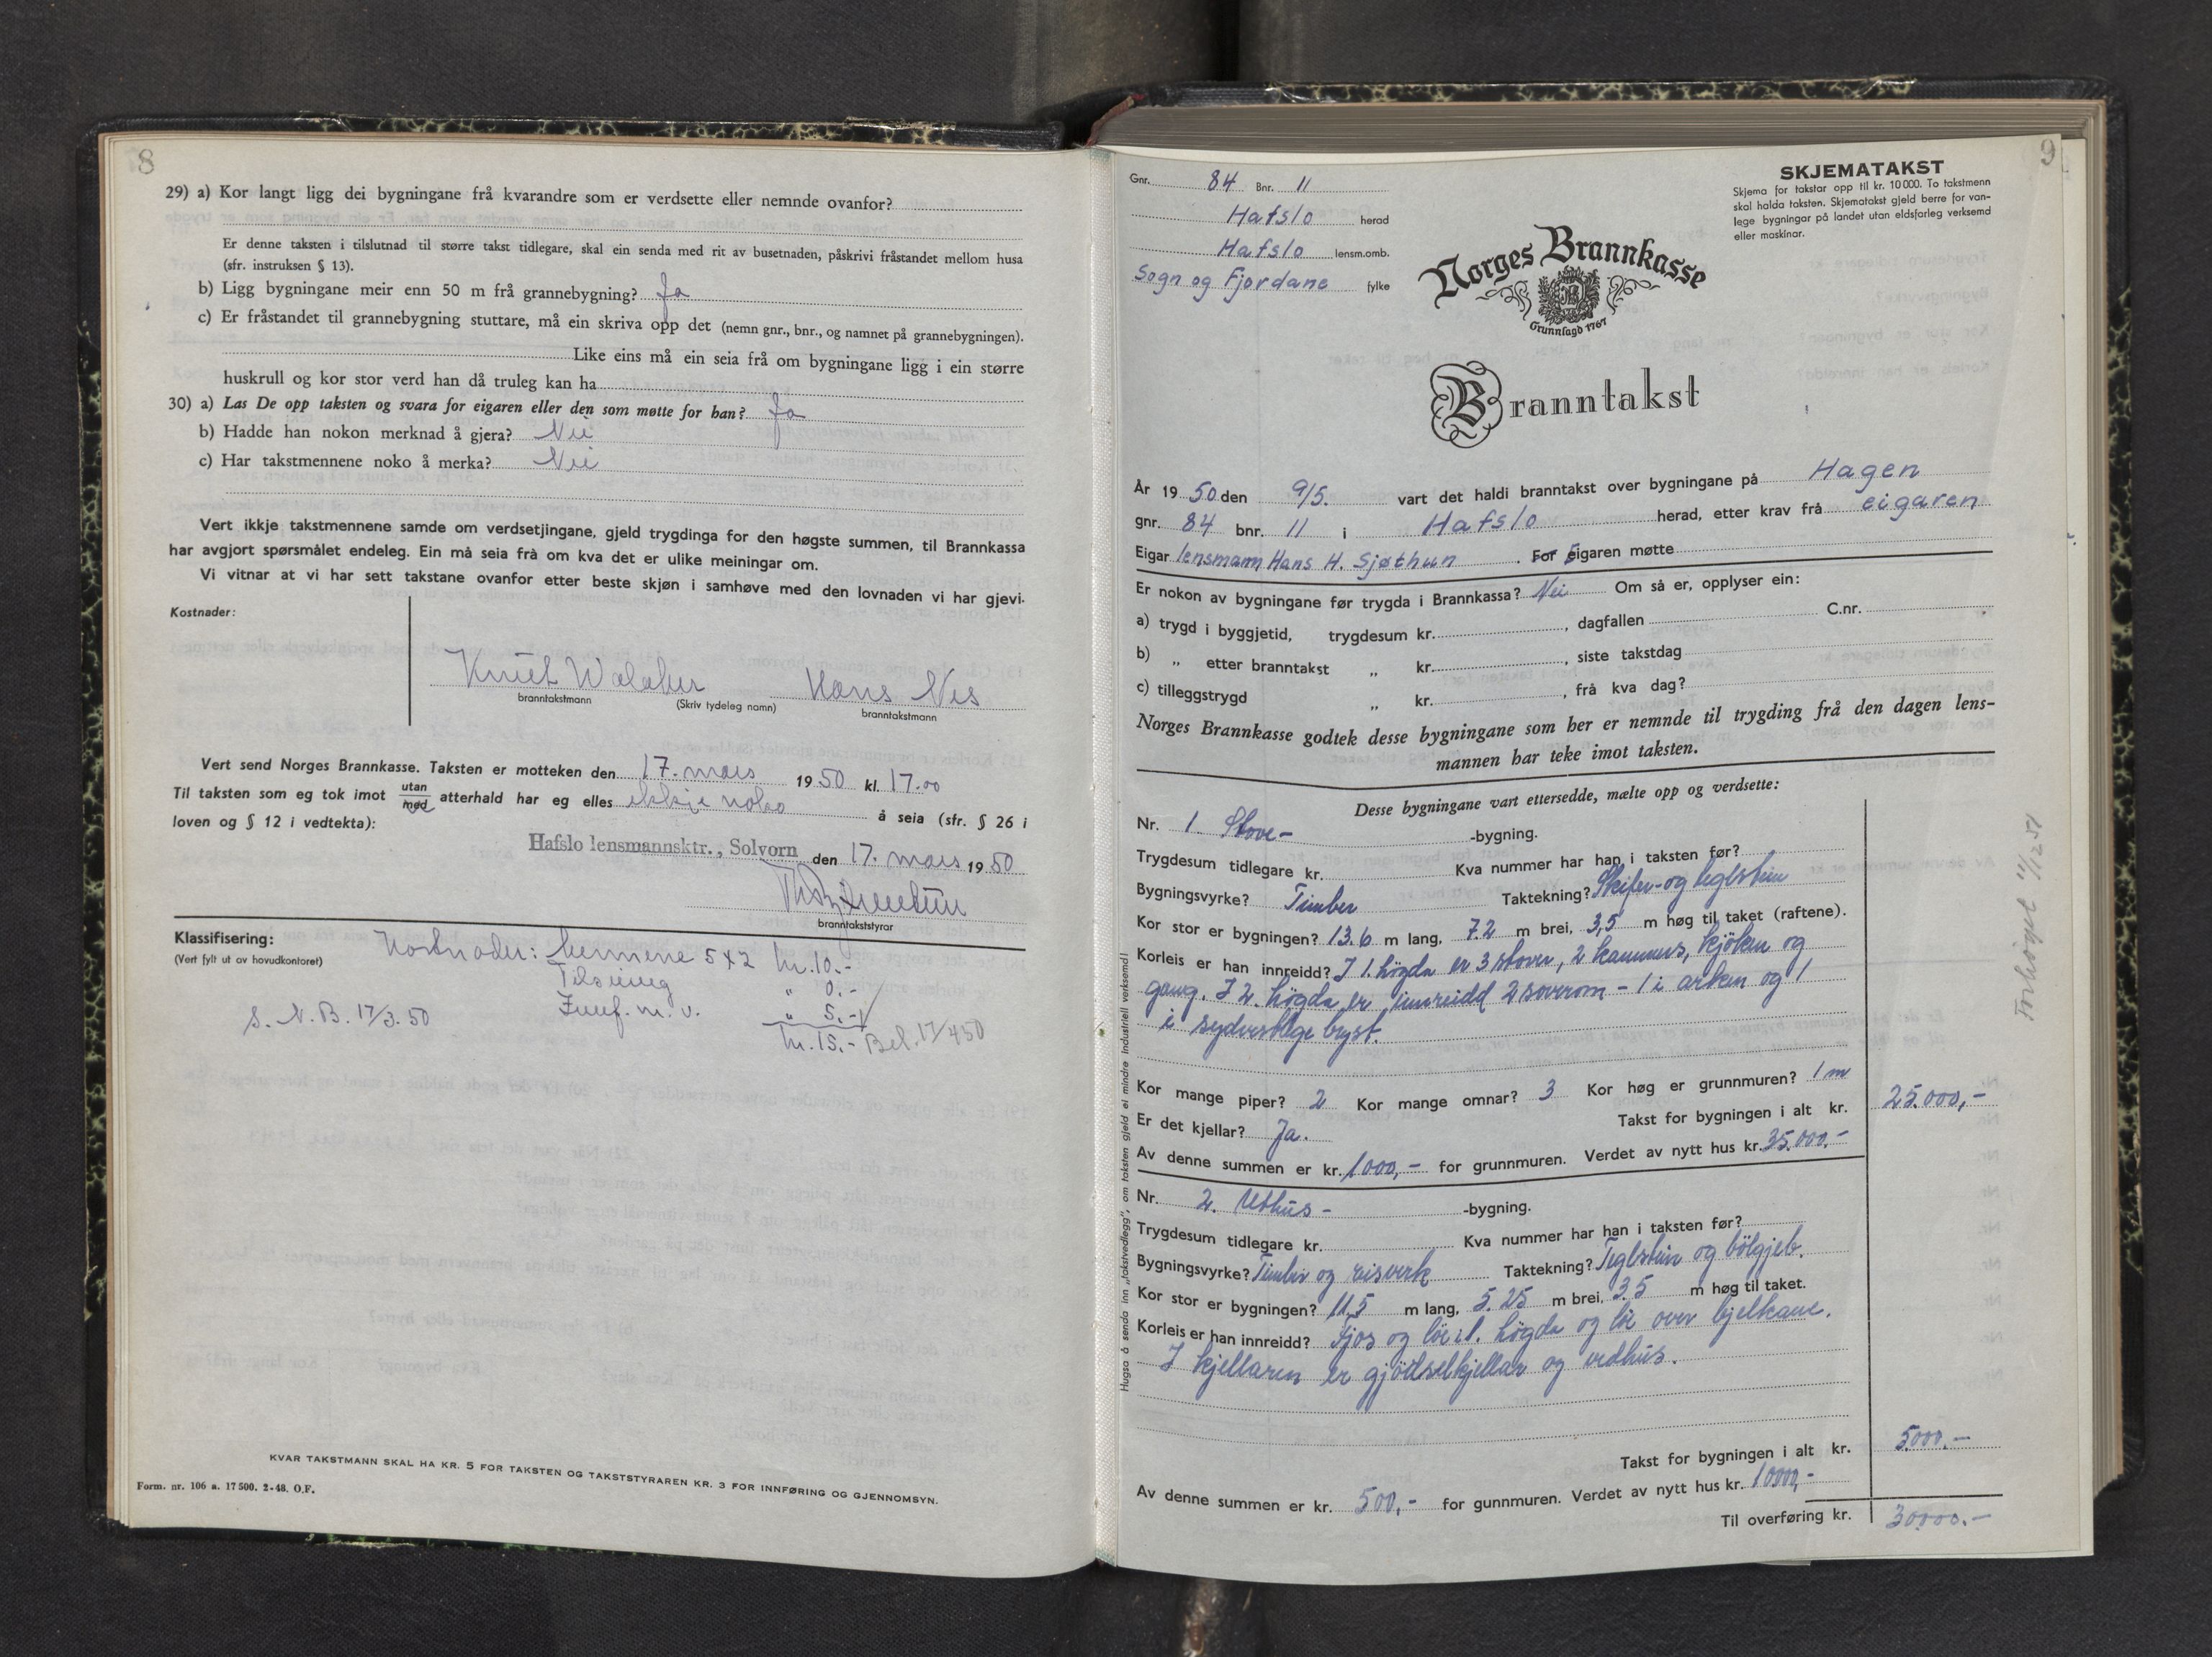 8
29) a) Kor langt ligg dei bygningane frå kvarandre som er verdsette eller nemnde ovanfor?
Er denne taksten i tilslutnad til større takst tidlegare, skal ein senda med rit av busetnaden, påskrivi fråstandet mellom husa
(sfr. instruksen § 13).
b) Ligg bygningane meir enn 50 m frå grannebygning? Ja
c) Er fråstandet til grannebygning stuttare, må ein skriva opp det (nemn gnr., bnr., og namnet på grannebygningen).
Like eins må ein seia frå om bygningane ligg i ein større
huskrull og kor stor verd han då truleg kan ha
30) a) Las De opp taksten og svara for eigaren eller den som møtte for han? Ja
b) Hadde han nokon merknad å gjera? Nei
c) Har takstmennene noko å merka? Nei
Vert ikkje takstmennene samde om verdsetjingane, gjeld trygdinga for den høgste summen, til Brannkassa
har avgjort spørsmålet endeleg. Ein må seia frå om kva det er ulike meiningar om.
Vi vitnar at vi har sett takstane ovanfor etter beste skjøn i samhøve med den lovnaden vi har gjevi.
Kostnader:
Knut Walaker Hans Nes
branntakstmann (Skriv tydeleg namn) branntakstmann
Vert send Norges Brannkasse. Taksten er motteken den 17. mars 1950 kl. 17.00
Til taksten som eg tok imot utan/med atterhald har eg elles ikkje noko å seia (sfr. § 26 i
loven og § 12 i vedtekta):
Hafslo lensmannsktr., Solvorn den 17. mars 1950
branntakststyrar
Klassifisering:
(Vert fylt ut av hovudkontoret)
Kostnader: Mennene 5 x 2 kr. 10.-
Tilsening " 0.-
Innf. m. v. " 5.-
kr. 15.- Bet. 17/4 50
S. N. B. 17/3. 50
KVAR TAKSTMANN SKAL HA KR. 5 FOR TAKSTEN OG TAKSTSTYRAREN KR. 3 FOR INNFØRING OG GJENNOMSYN.
Form. nr. 106 a. 17 500. 2-48. O.F.
9
SKJEMATAKST
Skjema for takstar opp til kr. 10 000. To takstmenn
skal halda taksten. Skjematakst gjeld berre for van-
lege bygningar på landet utan eldsfarleg verksemd
eller maskinar.
Gnr. 84 Bnr. 11
Hafslo herad
Hafslo lensm.omb.
Sogn og Fjordane fylke
Norges Brannkasse
Grunnlagd 1767
Branntakst
År 1950 den 9/5. vart det haldi branntakst over bygningane på Hagen
gnr. 84 bnr. 11 i Hafslo herad, etter krav frå eigaren
Eigar lensmann Hans H. Sjøthun. For Eigaren møtte
Er nokon av bygningane før trygda i Brannkassa? Nei Om så er, opplyser ein:
a) trygd i byggjetid, trygdesum kr. , dagfallen C.nr.
b) „ etter branntakst „ kr. , siste takstdag
c) tilleggstrygd „ kr. , frå kva dag?
Norges Brannkasse godtek desse bygningane som her er nemnde til trygding frå den dagen lens-
mannen har teke imot taksten.
Desse bygningane vart ettersedde, mælte opp og verdsette:
Nr. 1. Stove- -bygning.
Trygdesum tidlegare kr. Kva nummer har han i taksten før?
Bygningsvyrke? Timber Taktekning? Skifer- og teglstein
Kor stor er bygningen? 13.6 m lang, 7.2 m brei, 3,5 m høg til taket (raftene).
Korleis er han innreidd? I 1. högda er 3 stover, 2 kammers, kjöken og
gang. I 2. högda er innreidd 2 soverom - 1 i arken og 1
i sydvestlege bryst.
Kor mange piper? 2 Kor mange omnar? 3 Kor høg er grunnmuren? 1 m
Er det kjellar? Ja. Takst for bygningen i alt kr. 25.000,-
Av denne summen er kr. 1000,- for grunnmuren. Verdet av nytt hus kr. 35.000.-
Nr. 2. Uthus - -bygning.
Trygdesum tidlegare kr. Kva nummer har han i taksten før?
Bygningsvyrke? Timber og reisverk Taktekning? Teglstein og bölgjeb.
Kor stor er bygningen? 11.5 m lang, 5.25 m brei, 3.5 m høg til taket.
Korleis er han innreidd? Fjos og löe i 1. högda og löe over bjelkane.
I kjellaren er gjödselkjellar og vedhus.
Takst for bygningen i alt kr. 5000.-
Av denne summen er kr. 500,- for gunnmuren. Verdet av nytt hus kr. 10000,-
Til overføring kr. 30000.-
Hugsa å senda inn „takstvedlegg", om taksten gjeld ei mindre industriell verksemd!
Forhöyet 1/12 51